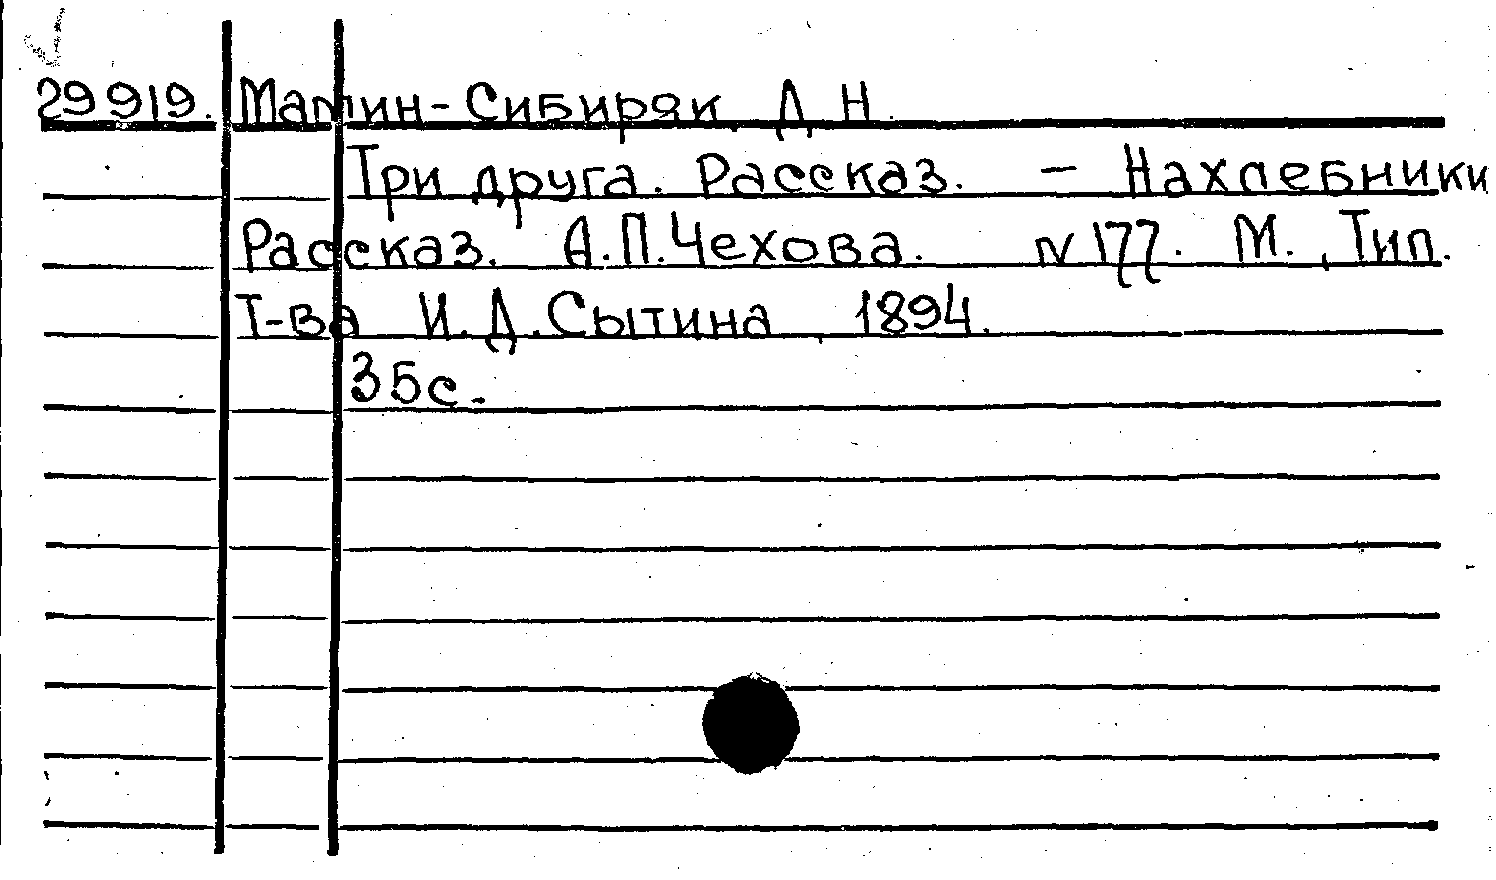 29919. Мамин-Сибиряк, Д.Н.
Три друга. Рассказ. – Нахлебники
Рассказ. А.П.Чехова. N 177. М., Тип.
Т-ва И.Д.Сытина, 1894.
35с.